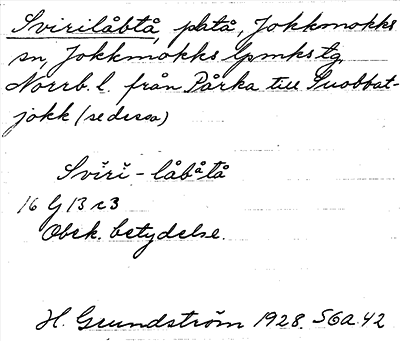 Svirilåbtå, platå, Jokkmokks
sn, Jokkmokks lpmks tg,
Norrb. l. från Pårka till Suobbat-
jokk (se dessa)
Sviri - låbåtå
16 G 13 c 3
Obek. betydelse.
H. Grundström 1928. S6a. 42